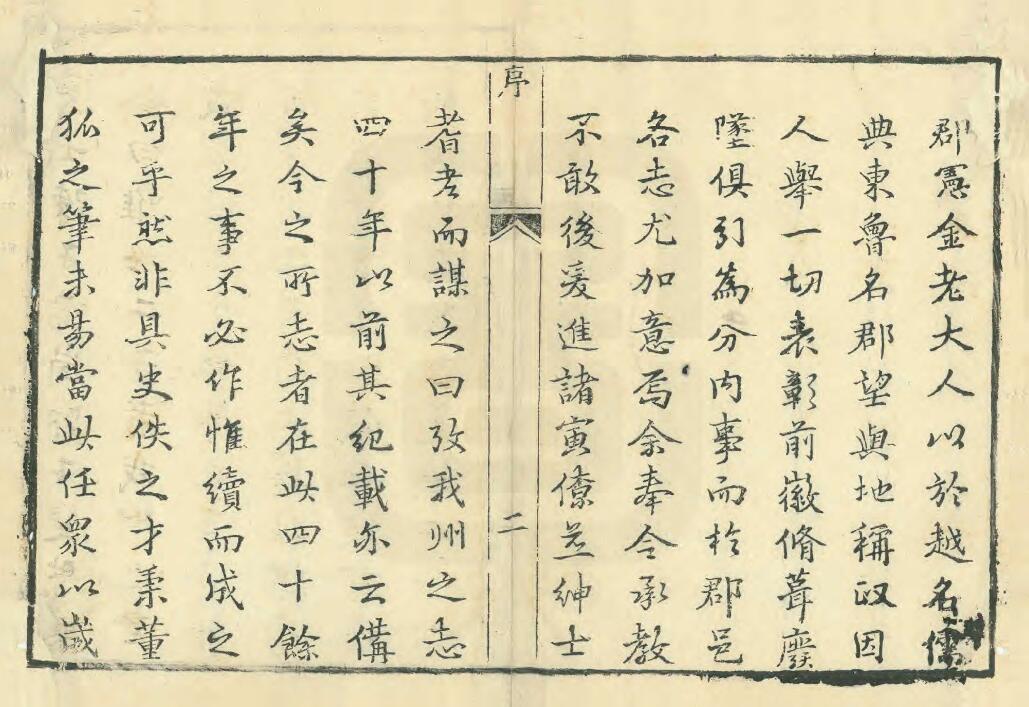 郡憲金老大人以於越名儒
典東魯名郡望與地稱政因
人舉一切表彰前徽脩葺廢
墜俱引為分内事而於郡邑
各志尤加意焉余奉令承教
不敢後爰進諸寅僚並紳士
序
二
耆老而謀之曰攷我州之志
四十年以前其紀載亦云備
矣今之所志者在此四十餘
年之事不必作惟續而成之
可乎然非具史佚之才秉董
狐之筆未易當此任衆以歲